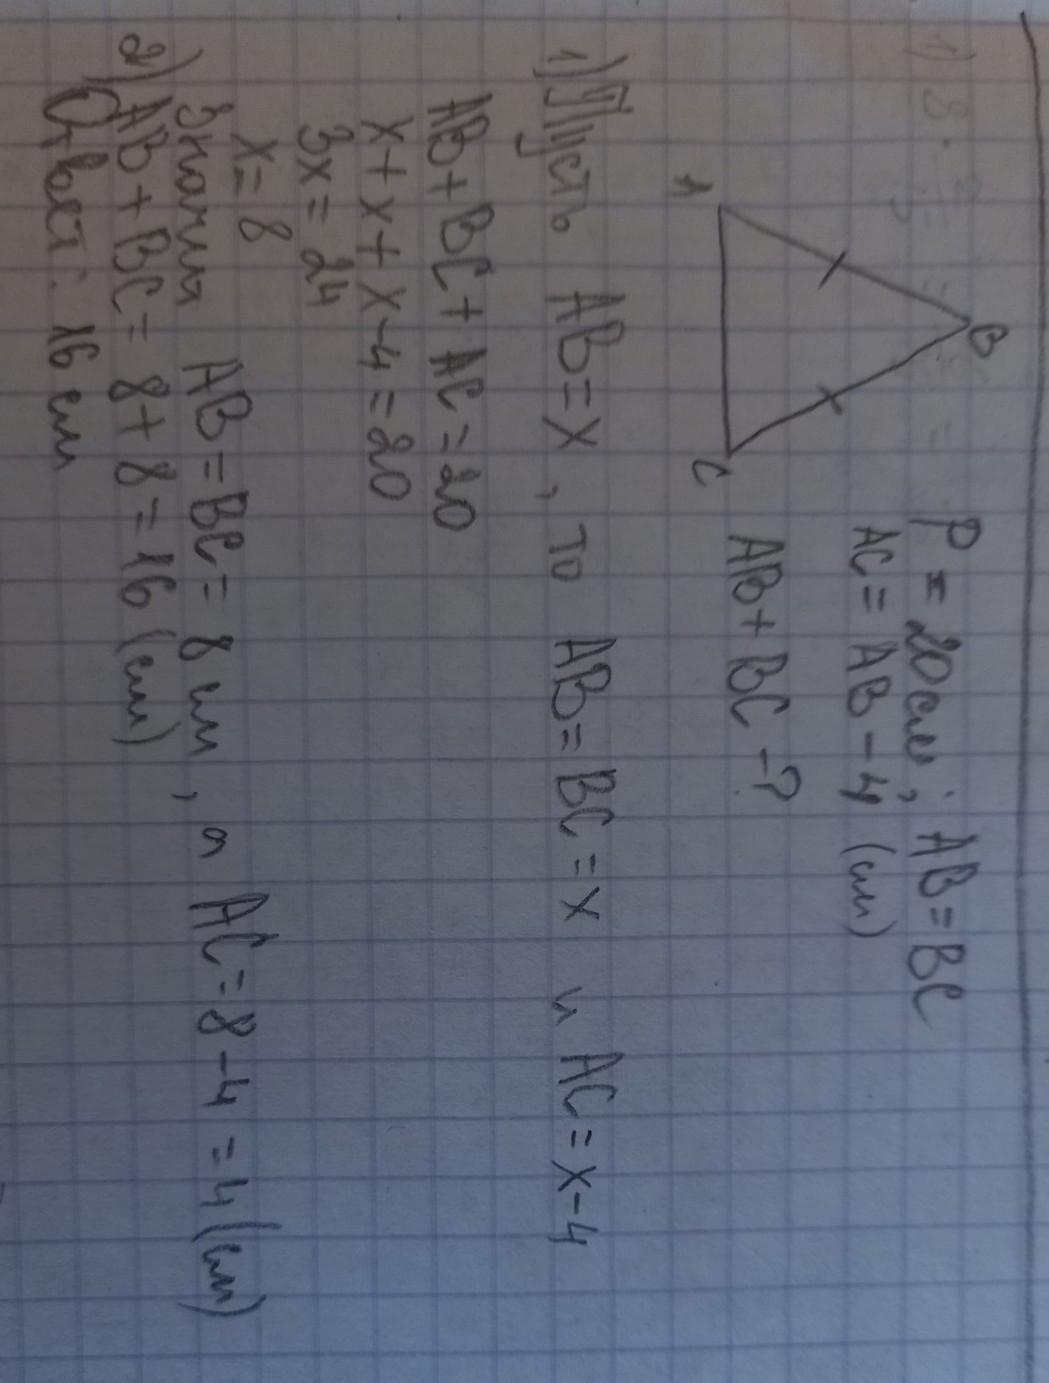 P = 20 см; AB = BC
AC = AB - 4 (см)
AB + BC - ?
B
A
C
1) Пусть AB = x, то AB = BC = x и AC = x - 4
AB + BC + AC = 20
x + x + x - 4 = 20
3x = 24
x = 8
Значит AB = BC = 8 см, а AC = 8 - 4 = 4 (см)
2) AB + BC = 8 + 8 = 16 (см)
Ответ: 16 см